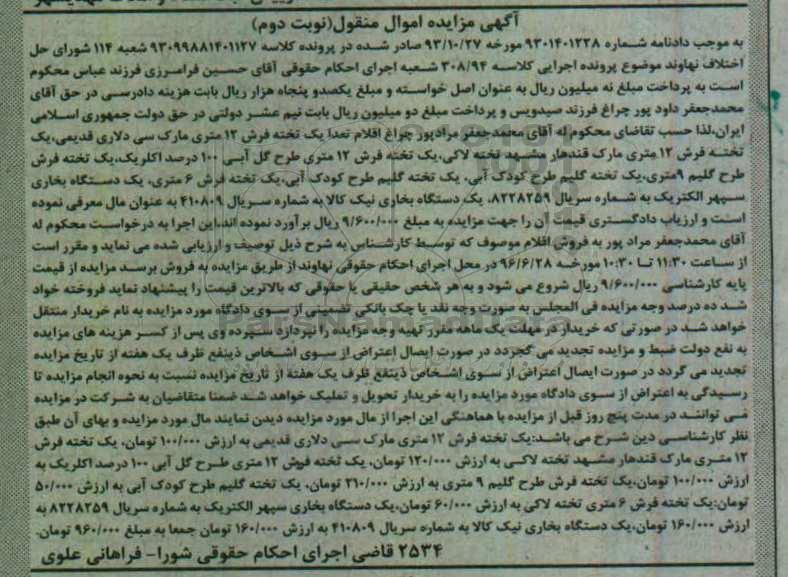 آگهی مزایده اموال منقول(نوبت دوم)
به موجب دادنامه شماره ۹۳۰۱۴۰۱۲۳۸ مورخه ۹۳/۱۰/۲۷ صادر شده در پرونده کلاسه ۹۳۰۹۹۸۸۱۴۰۱۱۲۷ شعبه ۱۱۴ شورای حل
اختلاف نهاوند موضوع پرونده اجرایی کلاسه ۳۰۸/۹۴ شعبه اجرای احکام حقوقی آقای حسین فرامرزی فرزند عباس محکوم
است به پرداخت مبلغ نه میلیون ریال به عنوان اصل خواسته و مبلغ یکصدو پنجاه هزار ریال بابت هزینه دادرسی در حق آقای
محمدجعفر داود پور چراغ فرزند صیدویس و پرداخت مبلغ دو میلیون ریال بابت نیم عشر دولتی در حق دولت جمهوری اسلامی
ایران،لذا حسب تقاضای محکوم له آقای محمدجعفر مرادپور چراغ اقلام تعدا یک تخته فرش ۱۲ متری مارک سی دلاری قدیمی،یک
تخته فرش ۱۲ متری مارک قندهار مشهد تخته لاکی،یک تخته فرش ۱۲ متری طرح گل آبی ۱۰۰ درصد اکلریک،یک تخته فرش
طرح گلیم ۹متری،یک تخته گلیم طرح کودک آبی، یک تخته گلیم طرح کودک آبی،یک تخته فرش ۶ متری، یک دستگاه بخاری
سپهر الکتریک به شماره سریال ۸۲۲۸۲۵۹، یک دستگاه بخاری نیک کالا به شماره سریال ۴۱۰۸۰۹ به عنوان مال معرفی نموده
است و ارزیاب دادگستری قیمت آن را جهت مزایده به مبلغ ۹/۶۰۰/۰۰۰ ریال برآورد نموده اند.این اجرا به درخواست محکوم له
آقای محمدجعفر مراد پور به فروش اقلام موصوف که توسط کارشناس به شرح ذیل توصیف و ارزیابی شده می نماید و مقرر است
از ساعت ۱۱:۳۰ تا ۱۰:۳۰ مورخه ۹۶/۶/۲۸ در محل اجرای احکام حقوقی نهاوند از طریق مزایده به فروش برسد مزایده از قیمت
پایه کارشناسی ۹/۶۰۰/۰۰۰ ریال شروع می شود و به هر شخص حقیقی یا حقوقی که بالاترین قیمت را پیشنهاد نماید فروخته خواد
شد ده درصد وجه مزایده فی المجلس به صورت وجه نقد یا چک بانکی تضمینی از سوی دادگاه مورد مزایده به نام خریدار منتقل
خواهد شد در صورتی که خریدار در مهلت یک ماهه مقرر تهیه وجه مزایده را نپردازد سپرده وی پس از کسر هزینه های مزایده
به نفع دولت ضبط و مزایده تجدید می گجردد در صورت ایصال اعتراض از سوی اشخاص ذینفع ظرف یک هفته از تاریخ مزایده
تجدید می گردد در صورت ایصال اعتراض از سوی اشخاص ذینفع ظرف یک هفته از تاریخ مزایده نسبت به نحوه انجام مزایده تا
رسیدگی به اعتراض از سوی دادگاه مورد مزایده را به خریدار تحویل و تملیک خواهد شد ضمنا متقاضیان به شرکت در مزایده
می توانند در مدت پنج روز قبل از مزایده با هماهنگی این اجرا از مال مورد مزایده دیدن نمایند مال مورد مزایده و بهای آن طبق
نظر کارشناسی دین شرح می باشد:یک تخته فرش ۱۲ متری مارک سی دلاری قدیمی به ارزش ۱۰۰/۰۰۰ تومان، یک تخته فرش
۱۲ متری مارک قندهار مشهد تخته لاکی به ارزش ۱۲۰/۰۰۰ تومان، یک تخته فرش ۱۲ متری طرح گل آبی ۱۰۰ درصد اکلریک به
ارزش ۱۰۰/۰۰۰ تومان،یک تخته فرش طرح گلیم ۹ متری به ارزش ۲۱۰/۰۰۰ تومان، یک تخته گلیم طرح کودک آبی به ارزش ۵۰/۰۰۰
تومان:یک تخته فرش ۶ متری تخته لاکی به ارزش ۶۰/۰۰۰ تومان،یک دستگاه بخاری سپهر الکتریک به شماره سریال ۸۲۲۸۲۵۹ به
ارزش ۱۶۰/۰۰۰ تومان،یک دستگاه بخاری نیک کالا به شماره سریال ۴۱۰۸۰۹ به ارزش ۱۶۰/۰۰۰ تومان جمعا به مبلغ ۹۶۰/۰۰۰ تومان.
۲۵۳۴ قاضی اجرای احکام حقوقی شورا- فراهانی علوی